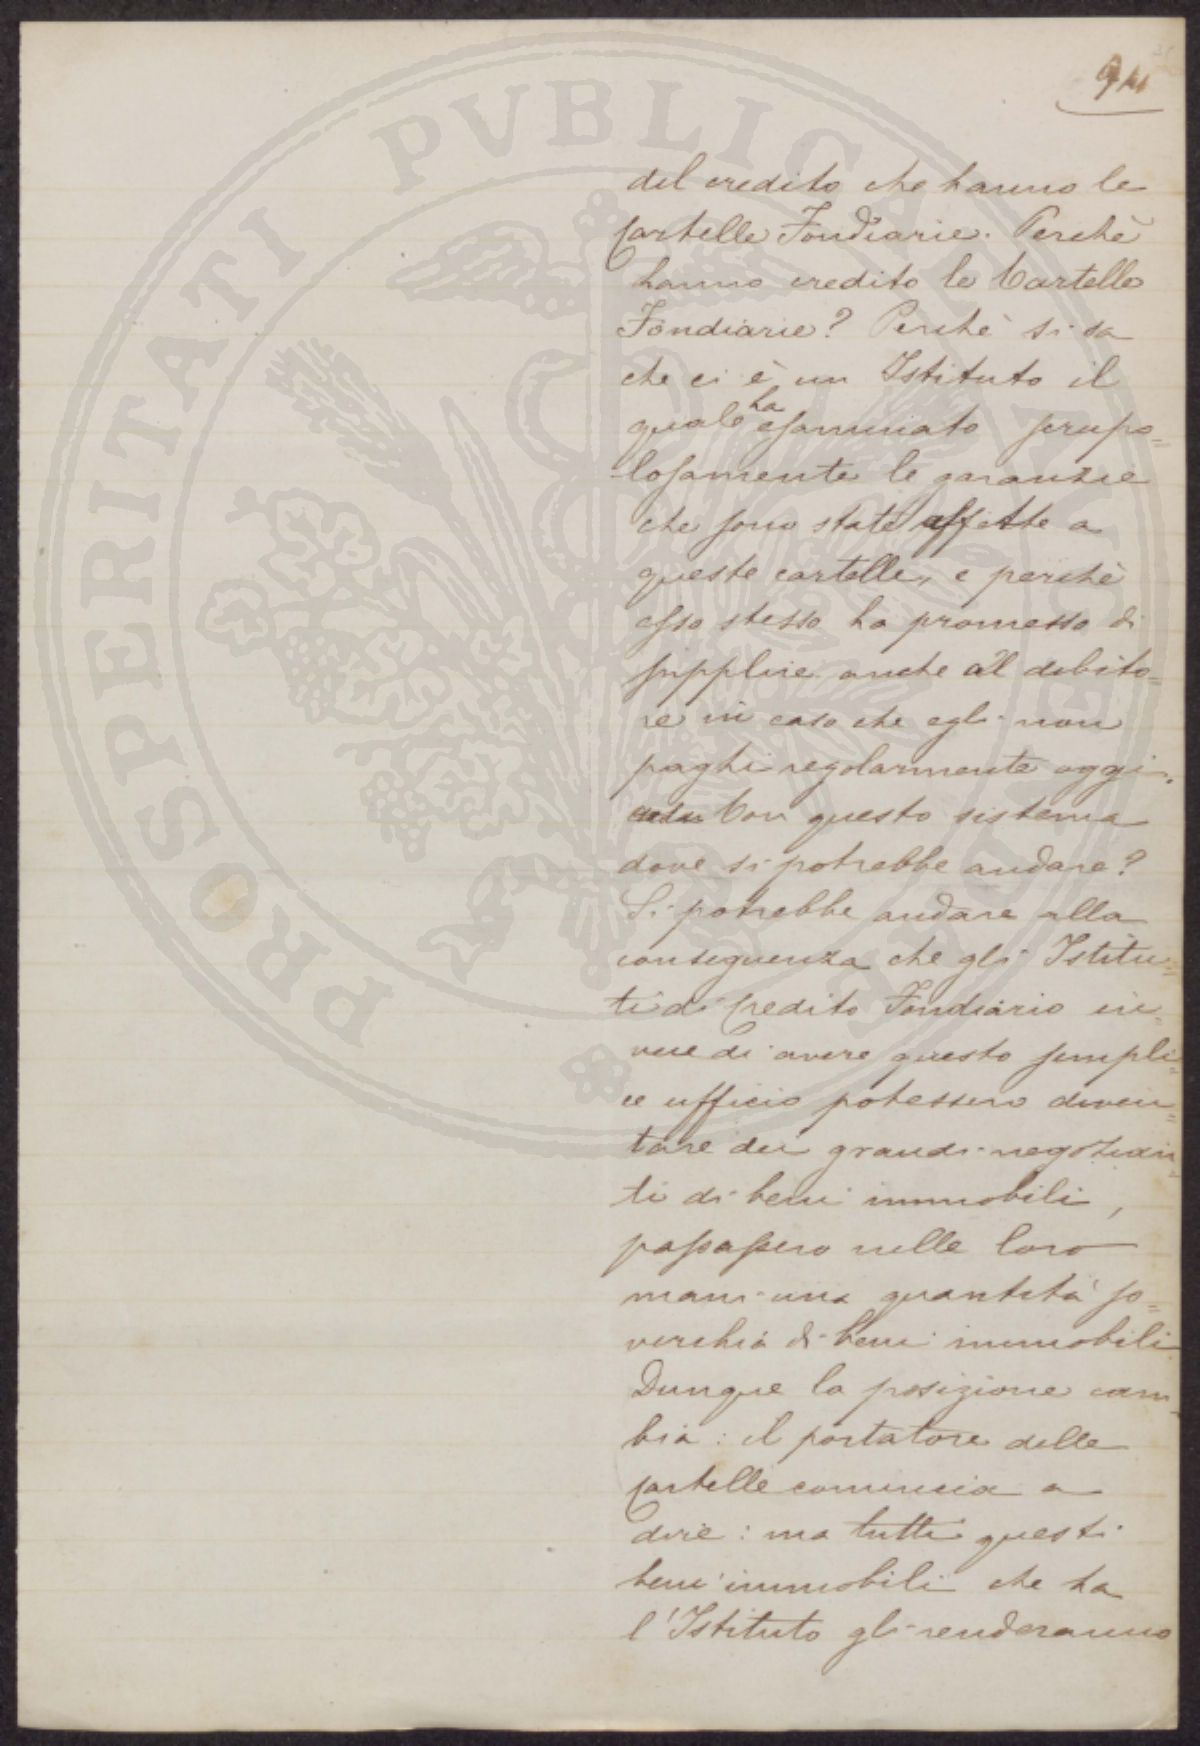 94
del credito che hanno le
Cartelle Fondiarie. Perchè
hanno credito le Cartelle
Fondiarie? Perchè si sa
che ci è un Istituto il
quale ha esaminato scrupo=
losamente le garanzie
che sono state affette a
queste cartelle, e perchè
esso stesso ha promesso di
supplire anche al debito=
re in caso che egli non
paghi regolarmente oggi.
Con questo sistema
dove si potrebbe andare?
Si potrebbe andare alla
conseguenza che gli Istitu=
ti di Credito Fondiario in=
vece di avere questo sempli=
ce ufficio potessero diven=
tare dei grandi negozian=
ti di beni immobili,
passassero nelle loro
mani una quantità so=
verchia di beni immobili
Dunque la posizione cam=
bia: il portatore delle
Cartelle comincia a
dire: ma tutti questi
beni immobili che ha
l'Istituto gli renderanno
PROSPERITATI PVBLICAE AVGENDAE